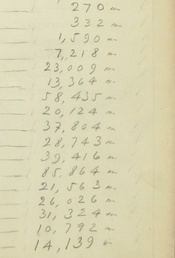 270 m
332 m
1,590 m
7,218 m
23,009 m
13,364 m
58,435 m
20,124 m
37,804 m
28,743 m
39,416 m
85,864 m
21,563 m
26,026 m
31,324 m
10,792 m
14,139 m